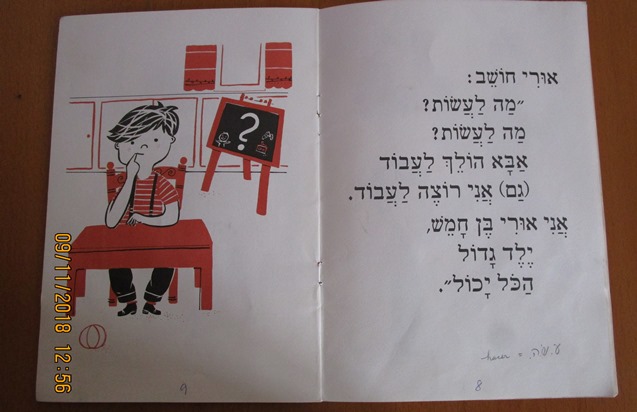 אוּרִי חוֹשֵׁב:
״מַה לַעֲשׂוֹת?
מַה לַעֲשׂוֹת?
אַבָּא הוֹלֵךְ לַעֲבוֹד
(גַם) אֲנִי רוֹצֶה לַעֲבוֹד.
אֲנִי אוּרִי בֶּן חָמֵשׁ,
יֶלֶד גָדוֹל
הַכֹּל יָכוֹל״.
8
?
9
09/11/2018 12:56